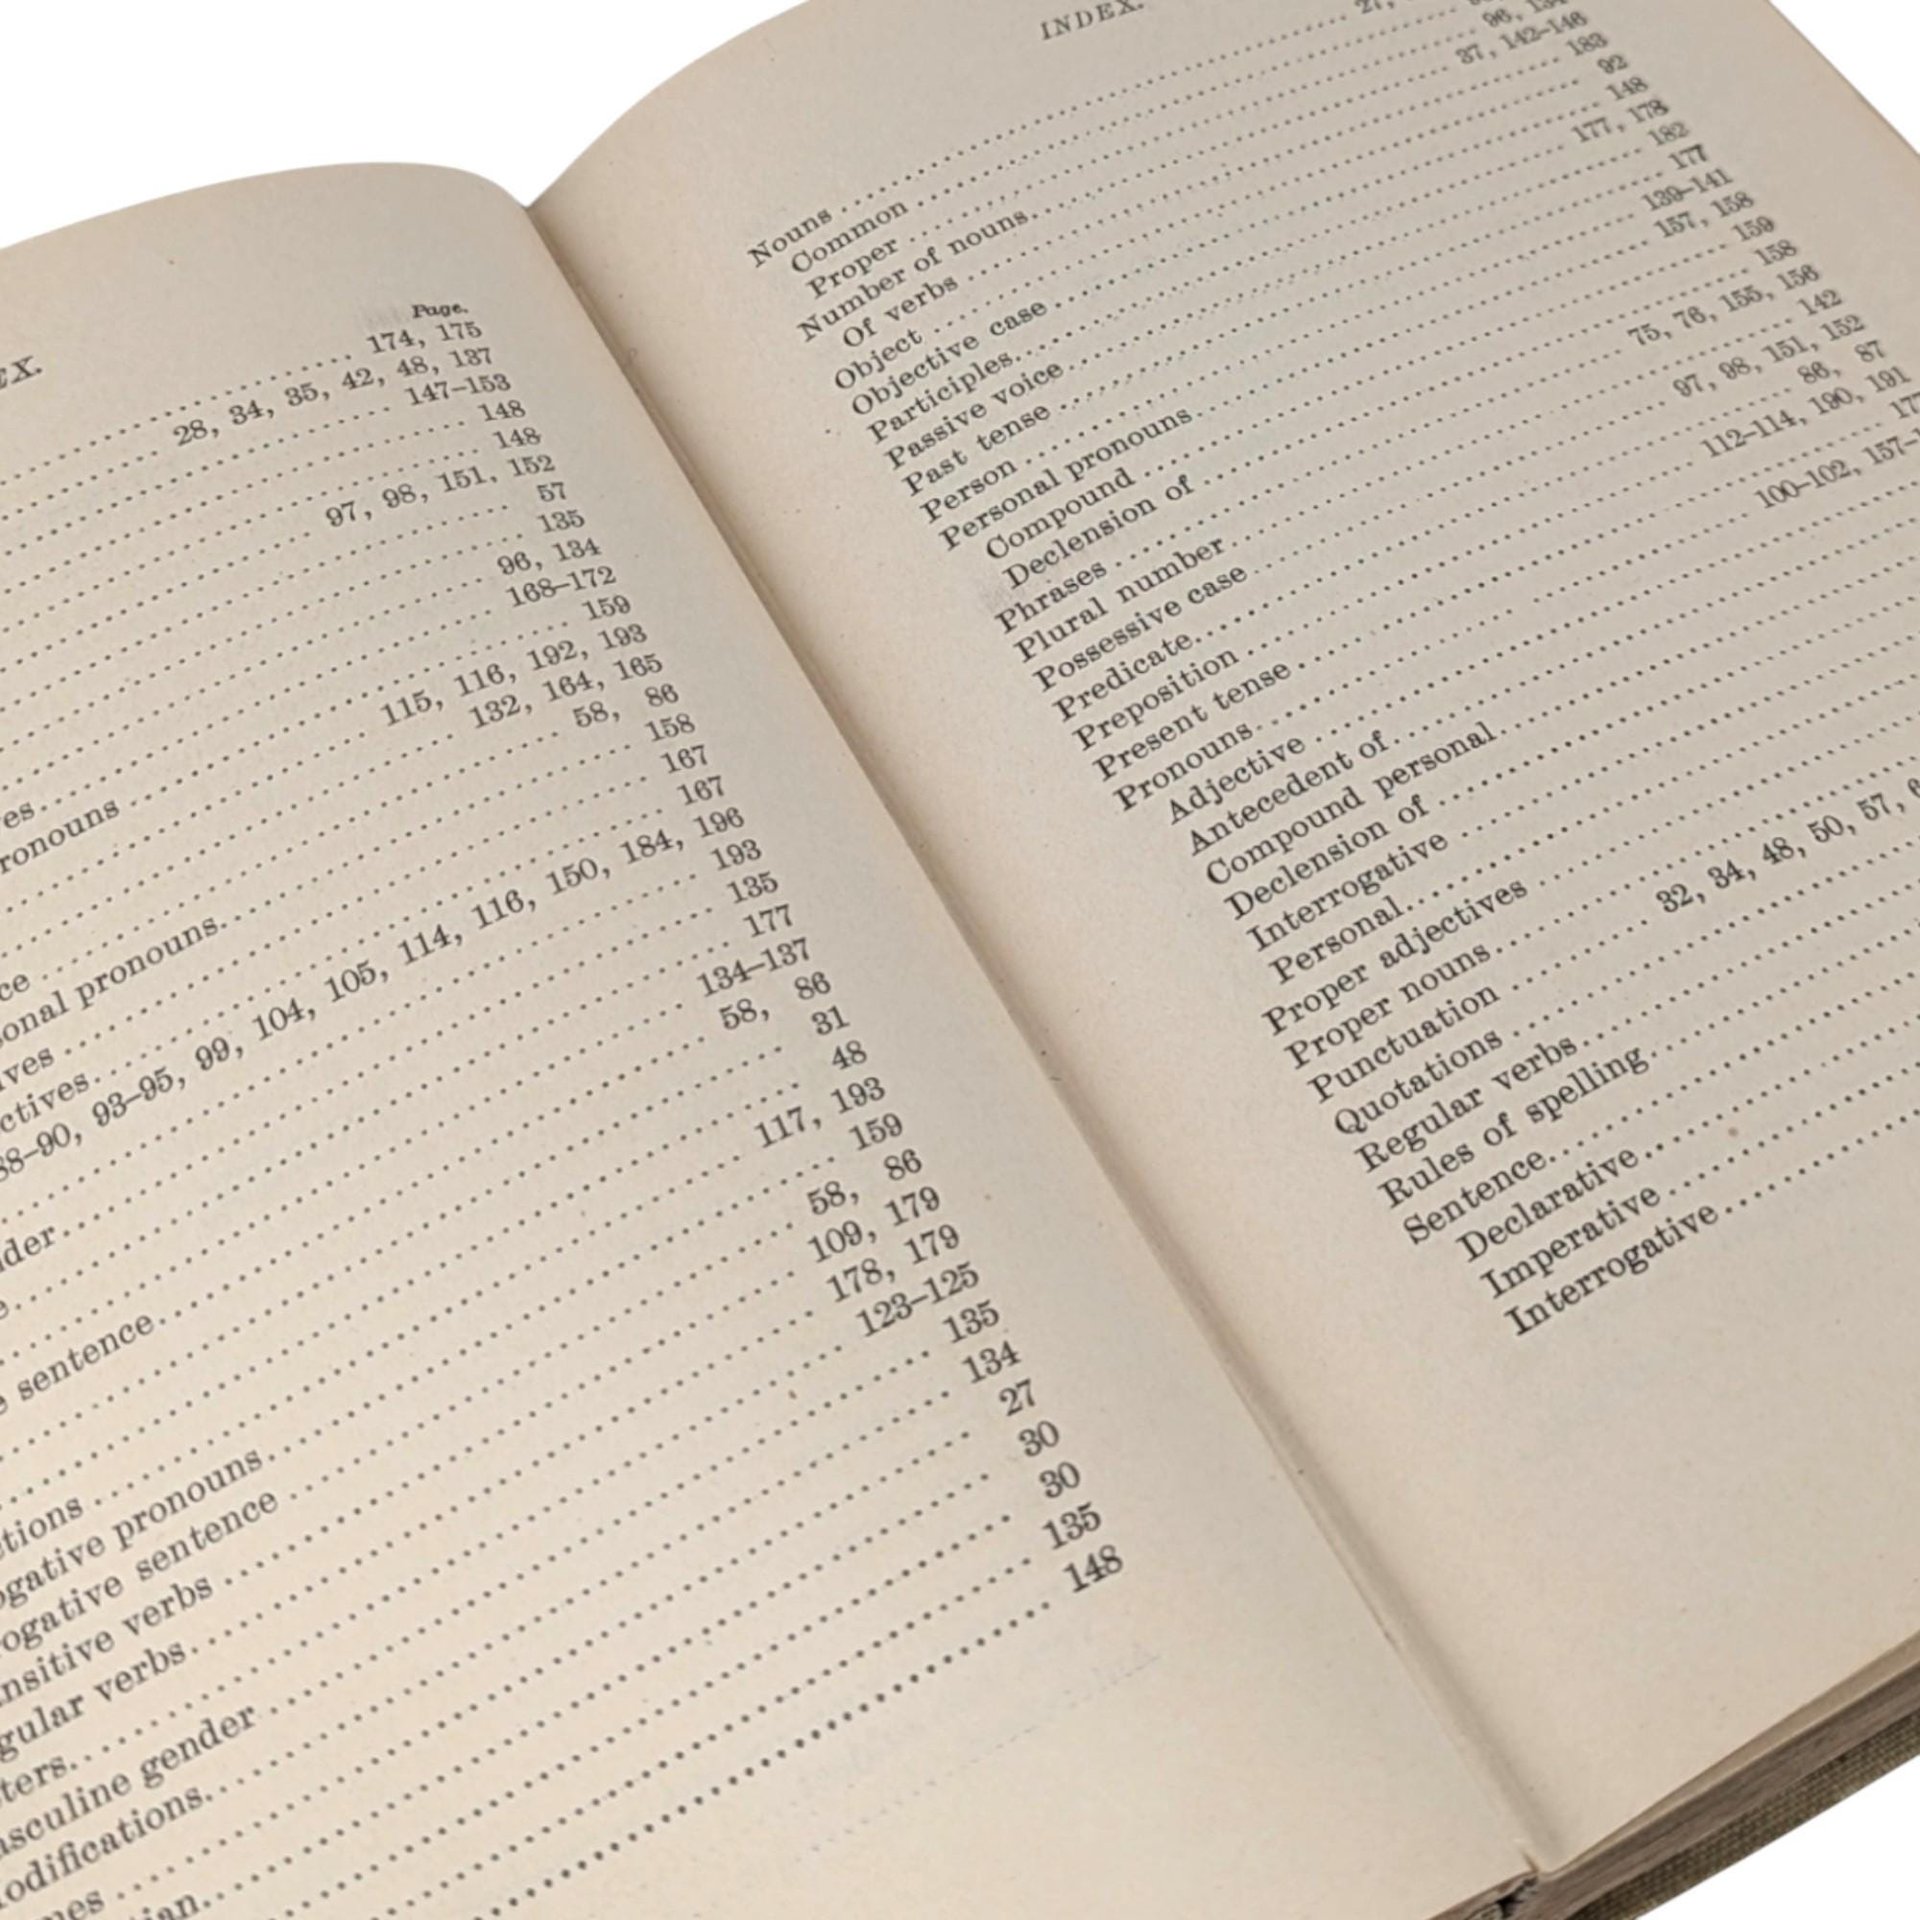 EX.
Page.
174, 175
28, 34, 35, 42, 48, 137
147–153
148
148
97, 98, 151, 152
57
135
96, 134
es 168–172
ronouns 159
115, 116, 192, 193
132, 164, 165
ce 58, 86
onal pronouns 158
ives 167
ctives 167
88–90, 93–95, 99, 104, 105, 114, 116, 150, 184, 196
193
der 135
e 177
134–137
e sentence 58, 86
31
48
ctions 117, 193
ogative pronouns 159
ogative sentence 58, 86
nsitive verbs 109, 179
gular verbs 178, 179
ters 123–125
asculine gender 135
odifications 134
mes 27
tian 30
30
135
148
INDEX.
Nouns 27,
Common
Proper 96, 134
Number of nouns 37, 142–146
Of verbs 183
Object 92
Objective case 148
Participles 177, 178
Passive voice 182
Past tense 177
Person 139–141
Personal pronouns 157, 158
Compound 159
Declension of 158
Phrases 75, 76, 155, 156
Plural number 142
Possessive case 97, 98, 151, 152
Predicate 86, 87
Preposition 112–114, 190, 191
Present tense 177
Pronouns 100–102, 157–1
Adjective
Antecedent of
Compound personal
Declension of
Interrogative
Personal
Proper adjectives
Proper nouns
Punctuation 32, 34, 48, 50, 57, 6
Quotations
Regular verbs
Rules of spelling
Sentence
Declarative
Imperative
Interrogative